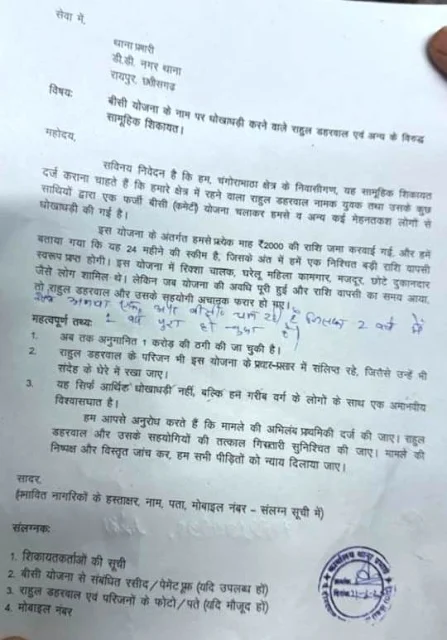 सेवा में,
थाना प्रभारी
डी.डी. नगर थाना
रायपुर, छत्तीसगढ़
विषयः बीसी योजना के नाम पर धोखाधड़ी करने वाले राहुल डहरवाल एवं अन्य के विरुद्ध
सामूहिक शिकायत।
महोदय,
सविनय निवेदन है कि हम, चंगोराभाठा क्षेत्र के निवासीगण, यह सामूहिक शिकायत
दर्ज कराना चाहते हैं कि हमारे क्षेत्र में रहने वाला राहुल डहरवाल नामक युवक तथा उसके कुछ
साथियों द्वारा एक फर्जी बीसी (कमेटी) योजना चलाकर हमसे व अन्य कई मेहनतकश लोगों से
धोखाधड़ी की गई है।
इस योजना के अंतर्गत हमसे प्रत्येक माह ₹2000 की राशि जमा करवाई गई, और हमें
बताया गया कि यह 24 महीने की स्कीम है, जिसके अंत में हमें एक निश्चित बड़ी राशि वापसी
स्वरूप प्राप्त होगी। इस योजना में रिक्शा चालक, घरेलू महिला कामगार, मजदूर, छोटे दुकानदार
जैसे लोग शामिल थे। लेकिन जब योजना की अवधि पूरी हुई और राशि वापसी का समय आया,
तो राहुल डहरवाल और उसके सहयोगी अचानक फरार हो गए।
2 वर्ष में
1 वर्ष पूरा हो चुका है
महत्वपूर्ण तथ्यः
1. अब तक अनुमानित 1 करोड़ की ठगी की जा चुकी है।
2. राहुल डहरवाल के परिजन भी इस योजना के प्रचार-प्रसार में संलिप्त रहे, जिससे उन्हें भी
संदेह के घेरे में रखा जाए।
3. यह सिर्फ आर्थिक धोखाधड़ी नहीं, बल्कि हम गरीब वर्ग के लोगों के साथ एक अमानवीय
विश्वासघात है।
हम आपसे अनुरोध करते हैं कि मामले की अभिलंब प्राथमिकी दर्ज की जाए। राहुल
डहरवाल और उसके सहयोगियों की तत्काल गिरफ्तारी सुनिश्चित की जाए। मामले की
निष्पक्ष और विस्तृत जांच कर, हम सभी पीड़ितों को न्याय दिलाया जाए।
सादर,
(प्रभावित नागरिकों के हस्ताक्षर, नाम, पता, मोबाइल नंबर – संलग्न सूची में)
संलग्नकः
1. शिकायतकर्ताओं की सूची
2. बीसी योजना से संबंधित रसीद/पेमेंट प्रूफ (यदि उपलब्ध हों)
3. राहुल डहरवाल एवं परिजनों के फोटो/पते (यदि मौजूद हों)
4. मोबाइल नंबर